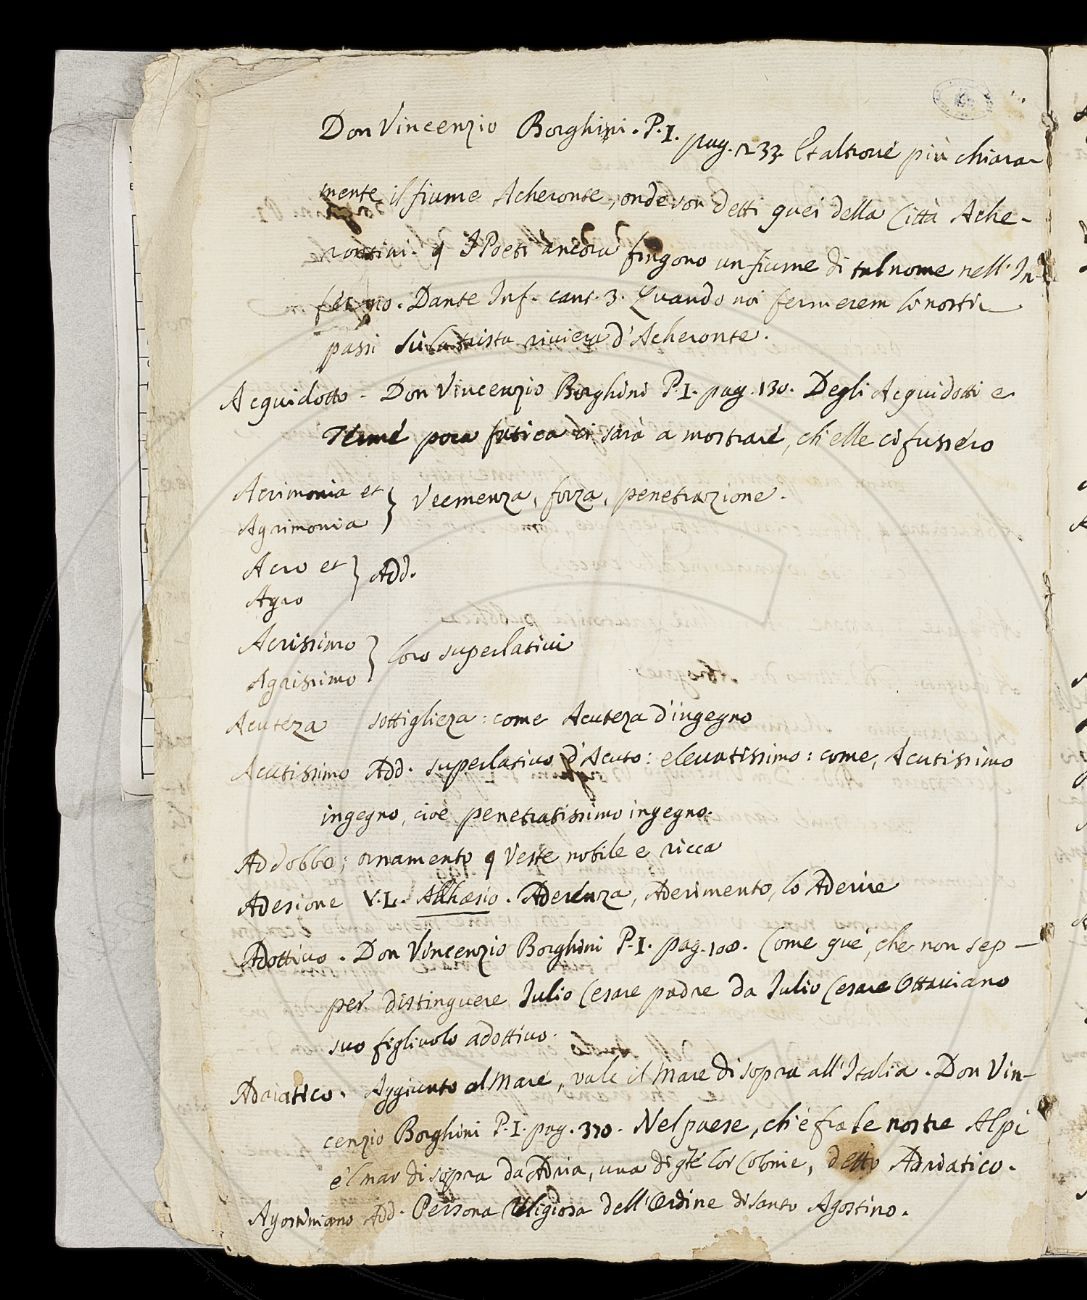 Don Vincenzio Borghini. P. I. pag. 233. Et altrove più chiara-
mente il fiume Acheronte, onde son detti quei della Città Ache-
rontini. I Poeti ancora fingono un fiume di tal nome nell' In-
ferno. Dante Inf. cant. 3. Quando noi fermerem li nostri
passi Sù la trista riviera d'Acheronte.
Acquidotto - Don Vincenzio Borghini P. I. pag. 130. Degli Acquidotti e
Terme poca fatica ci sarà a mostrare, ch' elle ci fussero
Acrimonia et } Veemenza, forza, penetrazione.
Agrimonia
Acro et } Add.
Agro
Acrissimo } loro superlativi
Agrissimo
Acuteza sottiglieza: come Acuteza d'ingegno
Acutissimo Add. superlativo d'Acuto: elevatissimo: come, Acutissimo
ingegno, cioè penetratissimo ingegno.
Addobbo; ornamento q veste nobile e ricca
Adesione V. L. Adhæsio. Aderenza, Aderimento, lo Aderire
Adottivo. Don Vincenzio Borghini P. I. pag. 100. Come que', che non sep-
per distinguere Julio Cesare padre da Julio Cesare Ottaviano
suo figlivolo adottivo.
Adriatico. Aggiunto al Mare, vale il Mare di sopra all'Italia. Don Vin-
cenzio Borghini P. I. pag. 370. Nel paese, ch' è fra le nostre Alpi
e 'l mar di sopra da Adria, una di q.te lor Colonie, detto Adriatico.
Agostiniano Add. Persona Religiosa dell'Ordine di Santo Agostino.